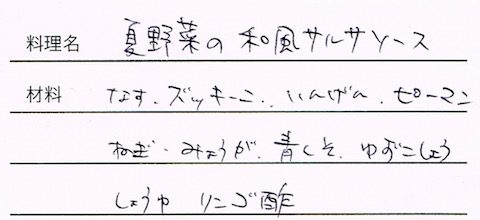 料理名 夏野菜の和風サルサソース
材料 なす、ズッキーニ、いんげん、ピーマン
ねぎ、みょうが、青じそ、ゆずこしょう
しょうゆ リンゴ酢